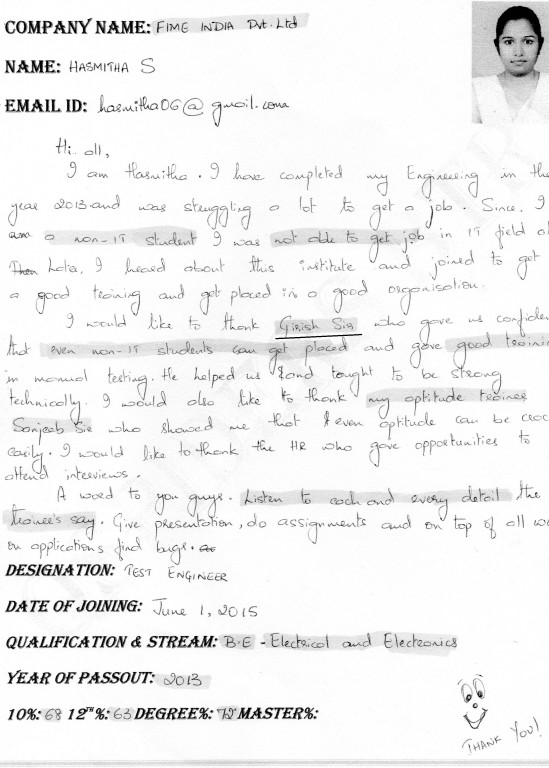 COMPANY NAME: FIME INDIA Pvt. Ltd
NAME: HASMITHA S
EMAIL ID: hasmitha06@gmail.com
Hi all,
I am Hasmitha. I have completed my Engineering in the
year 2013 and was struggling a lot to get a job. Since, I
am a non-IT student I was not able to get job in IT field
Then Late, I heard about this institute and joined to get
a good training and get placed in a good organisation.
I would like to thank Girish Sir who gave us
that even non-IT students can get placed and gave good
in manual testing. He helped us and taught to be strong
technically. I would also like to thank my aptitude trainer
Sanjeeb Sir who showed me that even aptitude can be
easily. I would like to thank the HR who gave opportunities to
attend interviews.
A word to you guys. Listen to each and every detail the
trainee's say. Give presentation, do assignments and on top of all
on applications find bugs.
DESIGNATION: TEST ENGINEER
DATE OF JOINING: June 1, 2015
QUALIFICATION & STREAM: B.E - Electrical and Electronics
YEAR OF PASSOUT: 2013
10%: 68 12TH%: 63 DEGREE%: 72 MASTER%:
THANK YOU!